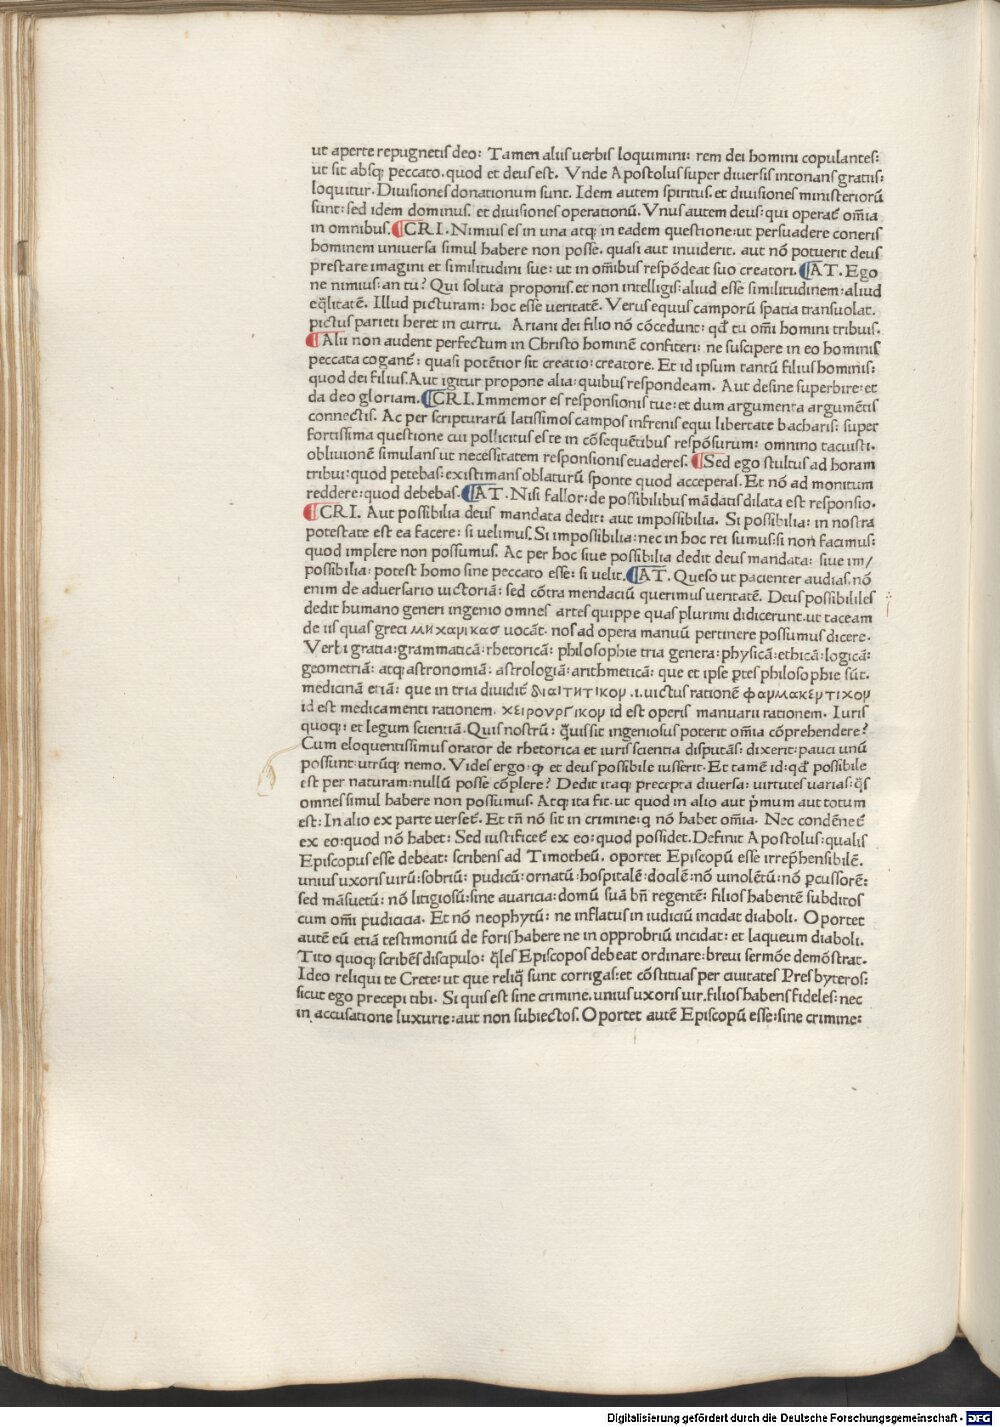 ut aperte repugnetis deo: Tamen aliis verbis loquimini: rem dei homini copulantes:
ut sit absq; peccato. quod et deus est. Vnde Apostolus super diversis intonans gratiis:
loquitur. Divisiones donationum sunt. Idem autem spiritus. et divisiones ministeriorū
sunt: sed idem dominus. et divisiones operationū. Vnus autem deus: qui operat̄ om̄ia
in omnibus. ¶CRI. Nimius es in una atq; in eadem questione: ut persuadere coneris
hominem universa simul habere non posse. quasi aut inviderit. aut nō potuerit deus
prestare imagini et similitudini sue: ut in om̄ibus respōdeat suo creatori. ¶AT. Ego
ne nimius: an tu? Qui soluta proponis. et non intelligis: aliud esse similitudinem: aliud
eq̄litatē. Illud picturam: hoc esse veritatē. Verus equus camporū spatia transvolat.
pictus parieti heret in curru. Ariani dei filio nō cōcedunt: qđ tu om̄i homini tribuis.
¶Alii non audent perfectum in Christo hominē confiteri: ne suscipere in eo hominis
peccata cogant̄: quasi potētior sit creatio: creatore. Et id ipsum tantū filius hominis:
quod dei filius. Aut igitur propone alia: quibus respondeam. Aut desine superbire: et
da deo gloriam. ¶CRI. Immemor es responsionis tue: et dum argumenta argumētis
connectis. Ac per scripturarū latissimos campos infrenis equi libertate bacharis: super
fortissima questione cui pollicitus es te in cōsequētibus respōsurum: omnino tacuisti.
oblivionē simulans ut necessitatem responsionis evaderes. ¶Sed ego stultus ad horam
tribui: quod petebas: existimans oblaturū sponte quod acceperas. Et nō ad monitum
reddere: quod debebas. ¶AT. Nisi fallor: de possibilibus mādatis dilata est responsio.
¶CRI. Aut possibilia deus mandata dedit: aut impossibilia. Si possibilia: in nostra
potestate est ea facere: si velimus. Si impossibilia: nec in hoc rei sumus: si non facimus:
quod implere non possumus. Ac per hoc sive possibilia dedit deus mandata: sive im/
possibilia: potest homo sine peccato esse: si velit. ¶AT. Queso ut pacienter audias. nō
enim de adversario victoriā: sed cōtra mendaciū querimus veritatē. Deus possibililes
dedit humano generi ingenio omnes artes quippe quas plurimi didicerunt. ut taceam
de iis quas greci μηχανικασ vocāt. nos ad opera manuū pertinere possumus dicere.
Verbi gratia: grammaticā: rhetoricā: philosophie tria genera: physicā: ethicā: logicā:
geometriā: atq; astronomiā: astrologiā: arithmeticā: que et ipse ptes philosophie sūt.
medicinā etiā: que in tria dividit̄ διαιτητικον .i. victus rationē φαρμακευτικον
id est medicamenti rationem. χειρουργικον id est operis manuarii rationem. Iuris
quoq;: et legum scientiā. Quis nostrū: q̄vis sit ingeniosus poterit om̄ia cōprehendere?
Cum eloquentissimus orator de rhetorica et iuris scientia disputās: dixerit: pauci unū
possunt: utrūq; nemo. Vides ergo: ꝙ et deus possibile iusserit. Et tamē id: qđ possibile
est per naturam: nullū posse cōplere? Dedit itaq; precepta diversa: virtutes varias: q̄s
omnes simul habere non possumus. Atq; ita fit. ut quod in alio aut p̄mum aut totum
est: In alio ex parte verset̄. Et tn̄ nō sit in crimine: q nō habet om̄ia. Nec condēnet̄
ex eo: quod nō habet: Sed iustificet̄ ex eo: quod possidet. Definit Apostolus: qualis
Episcopus esse debeat: scribens ad Timotheū. oportet Episcopū esse irrep̄hensibilē.
unius uxoris virū: sobriū: pudicū: ornatū: hospitalē: docilē: nō vinolētū: nō ꝑcussorē:
sed māsuetū: nō litigiosū: sine avaricia: domū suā bn̄ regentē: filios habentē subditos
cum om̄i pudicicia. Et nō neophytū: ne inflatus in iudiciū incidat diaboli. Oportet
autē eū etiā testimoniū de foris habere ne in opprobriū incidat: et laqueum diaboli.
Tito quoq; scribēs discipulo: q̄les Episcopos debeat ordinare: brevi sermōe demōstrat.
Ideo reliqui te Crete: ut que reliq̄ sunt corrigas: et cōstituas per civitates Presbyteros:
sicut ego precepi tibi. Si quis est sine crimine. unius uxoris vir. filios habens fideles: nec
in accusatione luxurie: aut non subiectos. Oportet autē Episcopū esse: sine crimine:
Digitalisierung gefördert durch die Deutsche Forschungsgemeinschaft - DFG